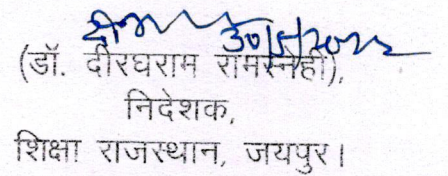 30/5/2022
(डॉ. दीरघराम रामस्नेही),
निदेशक,
शिक्षा राजस्थान, जयपुर।